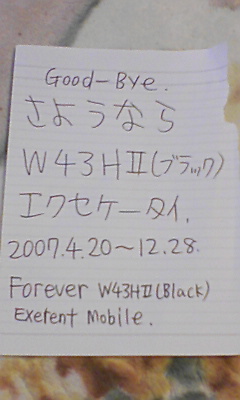 Good-Bye.
さようなら
W43HⅡ(ブラック)
エクセケータイ.
2007.4.20～12.28.
Forever W43HⅡ(Black)
Exetent Mobile.